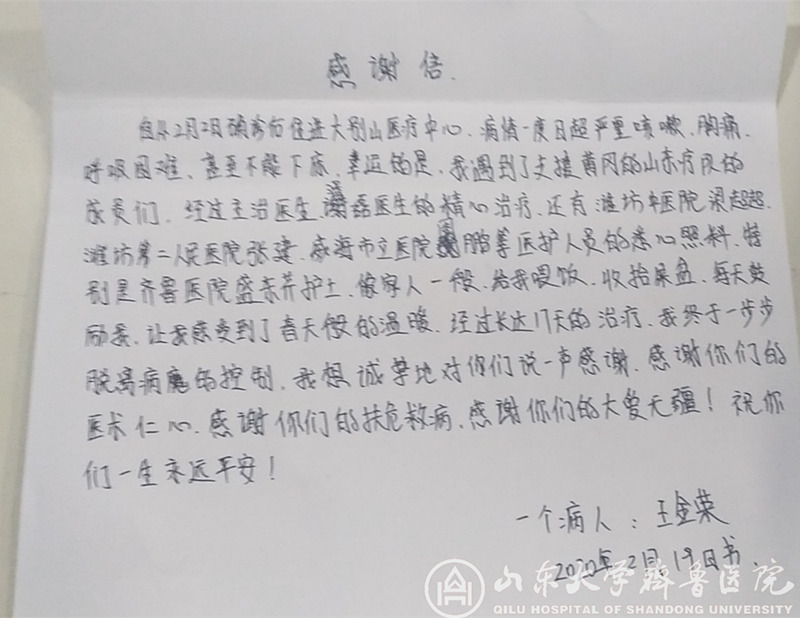 感谢信.
自从2月2日确诊后住进大别山医疗中心、病情一度日趋严重咳嗽、胸痛、
呼吸困难、甚至不能下床、幸运的是、我遇到了支援黄冈的山东疗队的
成员们、经过主治医生、磊医生的精心治疗、还有潍坊中医院梁超超、
潍坊第二人民医院张建、威海市立医院周鹏等医护人员的悉心照料、特
别是齐鲁医院盛东芹护士、像家人一般、给我喂饭、收拾屎盆、每天鼓
励我、让我感受到了春天般的温暖、经过长达17天的治疗、我终于一步步
脱离病魔的控制、我想诚挚地对你们说一声感谢、感谢你们的
医术仁心、感谢你们的扶危救病、感谢你们的大爱无疆！祝你
们一生永远平安！
一个病人：王金荣
2020年2月19日书.
山东大学齐鲁医院
QILU HOSPITAL OF SHANDONG UNIVERSITY